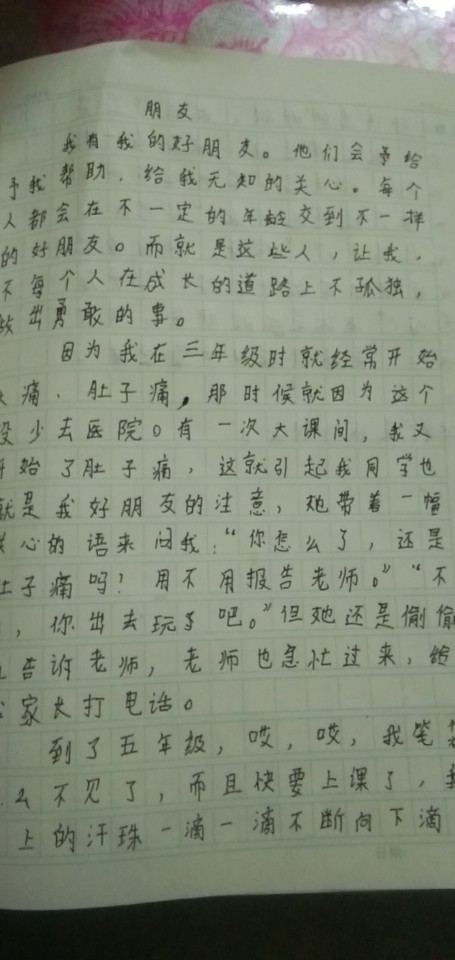 朋友
我有我的好朋友。他们会予给
予我帮助，给我无知的关心。每个
人都会在不一定的年龄交到不一样
的好朋友。而就是这些人，让我，
不每个人在成长的道路上不孤独，
做出勇敢的事。
因为我在三年级时就经常开始
痛，肚子痛，那时候就因为这个
没少去医院。有一次大课间，我又
开始了肚子痛，这就引起我同学也
就是我好朋友的注意，她带着一幅
关心的语来问我：“你怎么了，还是
肚子痛吗？用不用报告老师。”“不
，你出去玩了吧。”但她还是偷偷
告诉老师，老师也急忙过来，给
家长打电话。
到了五年级，哎，哎，我笔
么不见了，而且快要上课了，我
上的汗珠一滴一滴不断向下滴